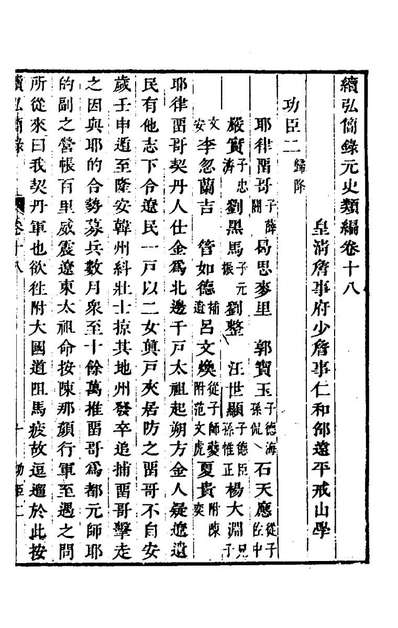 續弘簡錄元史類編卷十八
皇清詹事府少詹事仁和邵遠平戒山學
功臣二 歸降
耶律畱哥 子薛闍 曷思麥里 郭寶玉 子德海 孫侃 石天應 從子佐中
嚴實 子忠濟 劉黑馬 子元振 劉整 汪世顯 子德臣 孫惟正 楊大淵 兄子文安
李忽蘭吉 管如德 呂文煥 從子師夔 附范文虎 夏貴 附陳奕
耶律畱哥契丹人仕金爲北邊千戶太祖起朔方金人疑遼遺
民有他志下令遼民一戶以二女真戶夾居防之畱哥不自安
歲壬申遁至隆安韓州糾壯士掠其地州發卒追捕畱哥擊走
之因與耶的合勢募兵數月衆至十餘萬推畱哥爲都元帥耶
的副之營帳百里威震遼東太祖命按陳那顏行軍至遇之問
所從來曰我契丹軍也欲往附大國道阻馬疲故逗遛於此按
續弘簡錄 卷十八 功臣二